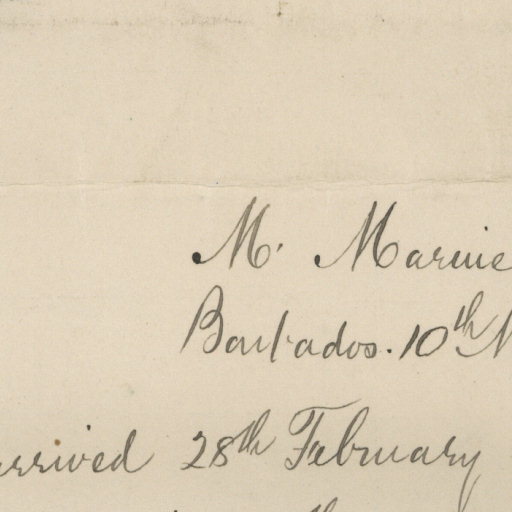 M. Marine
Barbados. 10th
arrived 28th February